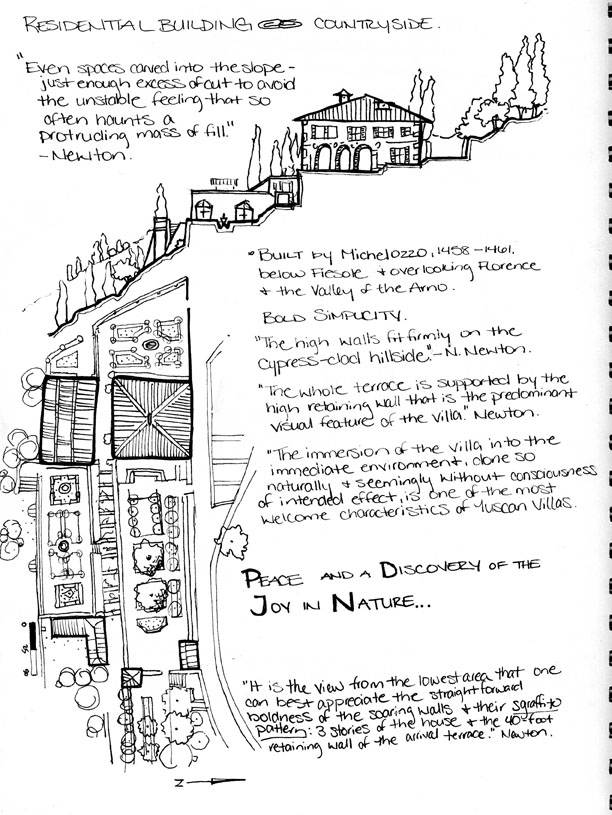 RESIDENTIAL BUILDING COUNTRYSIDE.
"Even spaces carved into the slope -
just enough excess of cut to avoid
the unstable feeling that so
often haunts a
protruding mass of fill."
- Newton.
"BUILT by Michelozzo, 1458-1461,
below Fiesole & overlooking Florence
& the Valley of the Arno.
BOLD SIMPLICITY.
"The high walls fit firmly on the
cypress-clad hillside." - N. Newton.
"The whole terrace is supported by the
high retaining wall that is the predominant
visual feature of the villa." Newton.
"The immersion of the villa into the
immediate environment, done so
naturally & seemingly without consciousness
of intended effect, is one of the most
welcome characteristics of Tuscan Villas.
PEACE AND A DISCOVERY OF THE
JOY IN NATURE...
"It is the view from the lowest area that one
can best appreciate the straightforward
boldness of the soaring walls & their sgraffito
pattern: 3 stories of the house & the 40-foot
retaining wall of the arrival terrace." Newton.
0
N